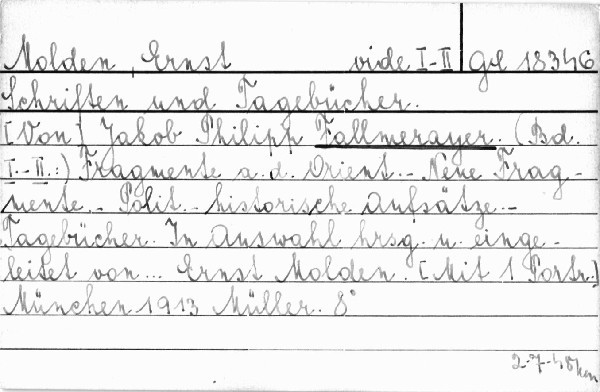 Molden, Ernst vide I-II Ge 18346
Schriften und Tagebücher.
[Von] Jakob Philipp Fallmerayer. (Bd.
I.-II.:) Fragmente a. d. Orient. - Neue Frag-
mente. - Polit. - historische Aufsätze. -
Tagebücher. In Auswahl hrsg. u. einge-
leitet von... Ernst Molden. [Mit 1 Portr.]
München 1913 Müller. 8°
2-7-48